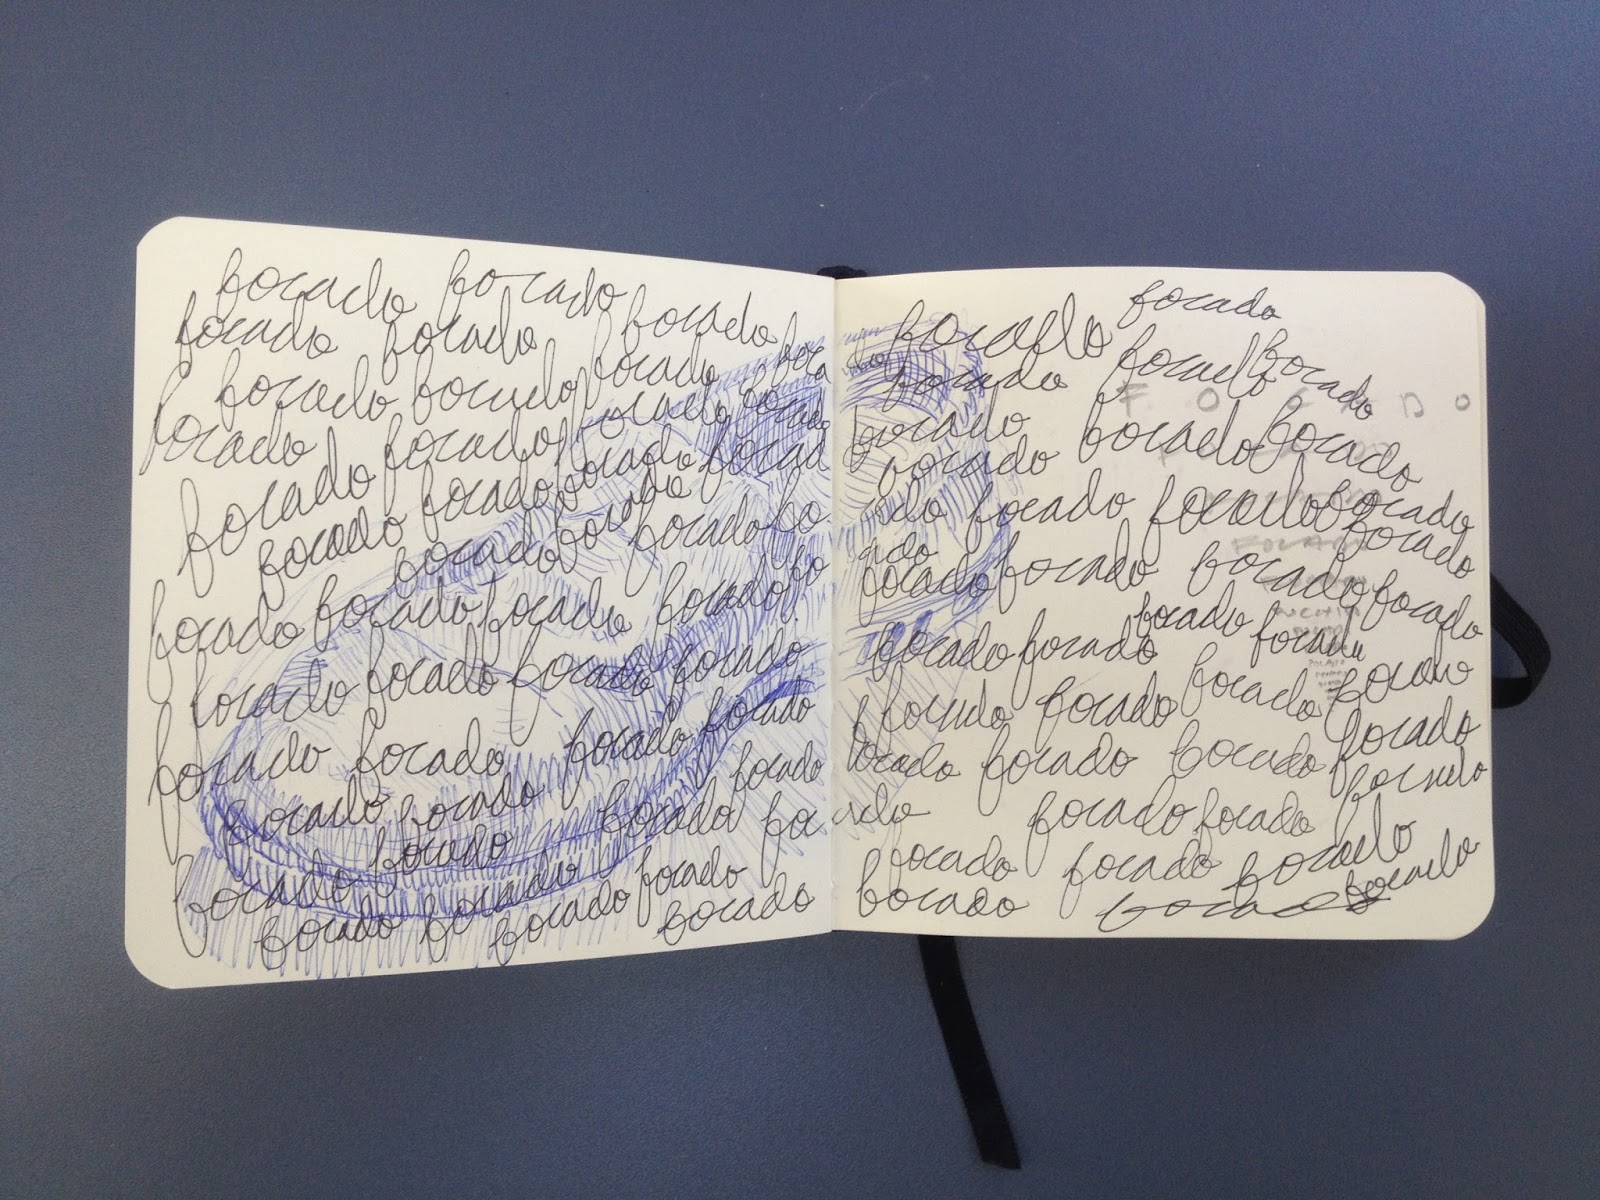 focado focado
focado focado focado
focado focado focado foca
focado focado focado foca
focado focado focado focad
focado focado focado focado fo
focado focado focado focado fo
focado focado focado focado
focado focado focado focado
focado focado focado
focado focado focado fo
focado focado focado focado
focado focado focado focado
focado
focado focado focado
focado focado
focado focado focado
focado
cado focado focado focado
cado focado
focado focado focado focado
focado focado
focado focado
focado focado focado focado
focado focado focado focado
focado
cado focado focado
focado focado focado focado
focado focado
F O C A D O
FOCADO